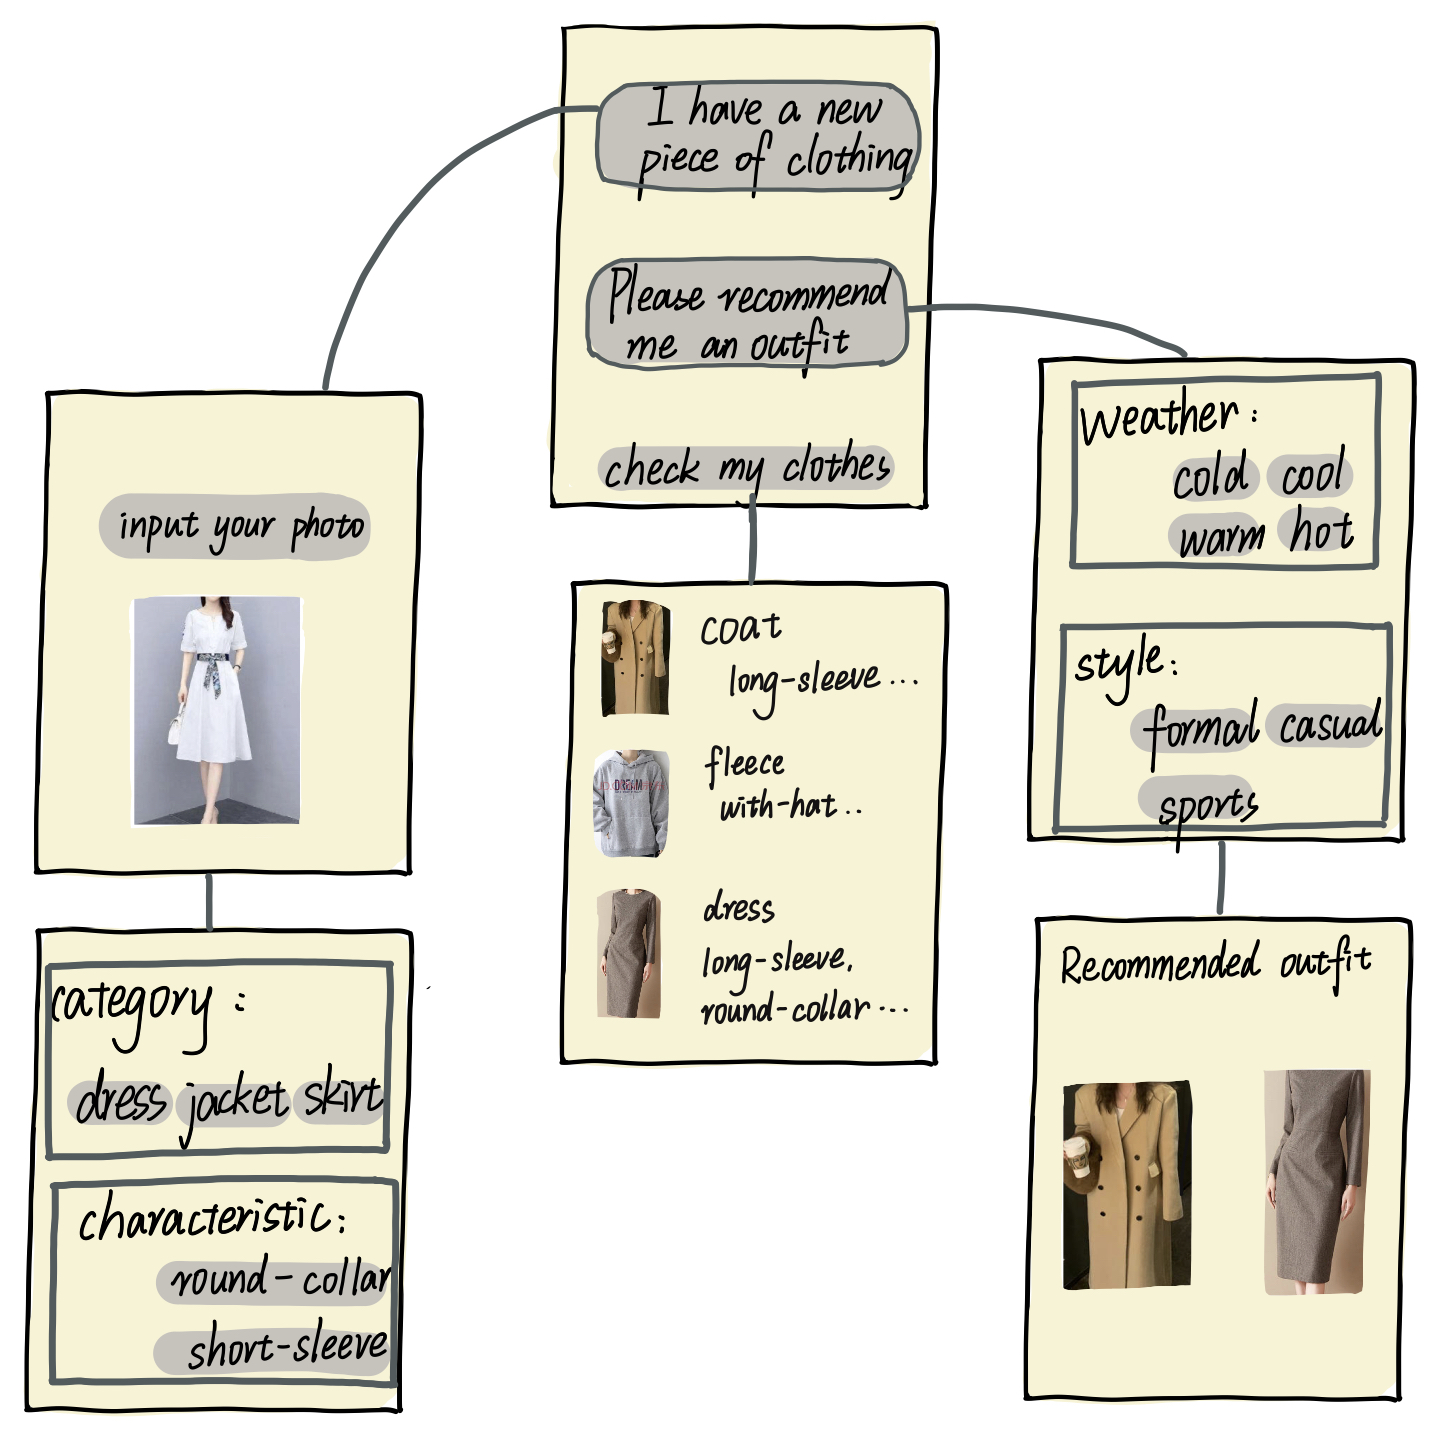 I have a new
piece of clothing
Please recommend
me an outfit
check my clothes
input your photo
category :
dress jacket skirt
characteristic:
round-collar
short-sleeve
coat
long-sleeve...
fleece
with-hat..
DREAM
dress
long-sleeve,
round-collar...
Weather:
cold cool
warm hot
style:
formal casual
sports
Recommended outfit